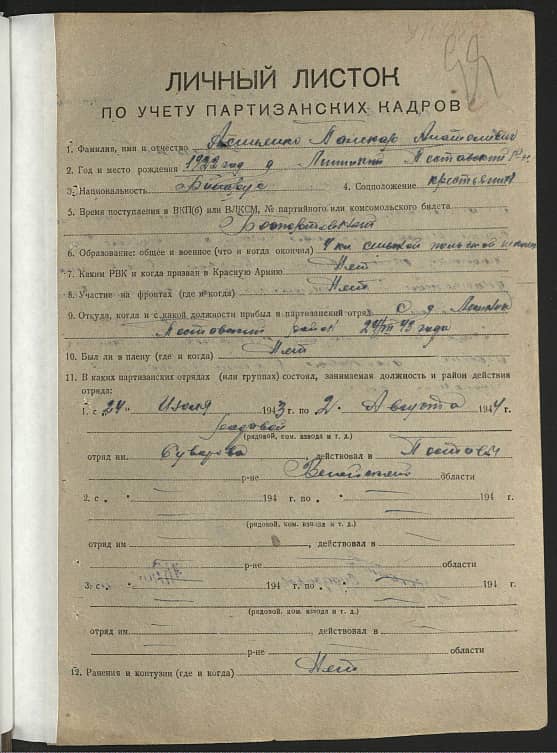 ЛИЧНЫЙ ЛИСТОК
ПО УЧЕТУ ПАРТИЗАНСКИХ КАДРОВ
1. Фамилия, имя и отчество
2. Год и место рождения 1922 год д.
3. Национальность Беларус 4. Соцположение крестьянин
5. Время поступления в ВКП(б) или ВЛКСМ, № партийного или комсомольского билета
6. Образование: общее и военное (что и когда окончил) 4 кл. сельской польской школы
7. Каким РВК и когда призван в Красную Армию Нет
8. Участие на фронтах (где и когда) Нет
9. Откуда, когда и с какой должности прибыл в партизанский отряд с д.
район 43 года
10. Был ли в плену (где и когда) Нет
11. В каких партизанских отрядах (или группах) состоял, занимаемая должность и район действия
отряда:
1. с 24 Июля 1943 г. по 2 Августа 1944 г.
Рядовой
(рядовой, ком. взвода и т. д.)
отряд им. Суворова, действовал в
р-не области
2. с 194 г. по 194 г.
(рядовой, ком. взвода и т. д.)
отряд им., действовал в
р-не области
3. с 194 г. по 194 г.
(рядовой, ком. взвода и т. д.)
отряд им., действовал в
р-не области
12. Ранения и контузии (где и когда) Нет